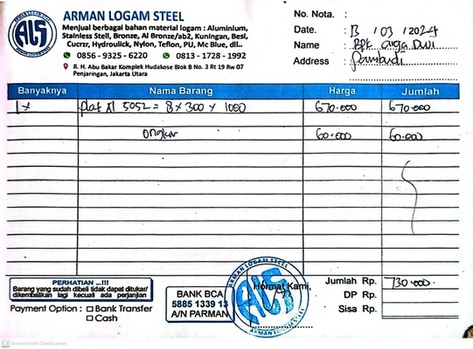 ALS
ARMAN LOGAM STEEL
Menjual berbagai bahan material logam : Aluminium,
Stainless Stell, Bronze, Al Bronze/ab2, Kuningan, Besi,
Cucrzr, Hydroulick, Nylon, Teflon, PU, Mc Blue, dll..
0856 - 9325 - 6220 0813 - 1728 - 1992
Jl. H. Abu Bakar Komplek Hudakose Blok B No. 3 Rt 19 Rw 07
Penjaringan, Jakarta Utara
No. Nota. :
Date. : 13 / 03 / 2024
Name : Bpk Dwi
Address :
Banyaknya Nama Barang Harga Jumlah
1x plat Al 5052 = 8 x 300 x 1000 670.000 670.000
ongkir 60.000 60.000
PERHATIAN ...!!!
Barang yang sudah dibeli tidak dapat ditukar/
dikembalikan lagi kecuali ada perjanjian
Payment Option : Bank Transfer
Cash
BANK BCA
5885 139 13
A/N PARMAN
Hormat Kami,
ARMAN LOGAM STEEL
ALS
Jumlah Rp. 730.000.
DP Rp.
Sisa Rp.
Scanned with CamScanner